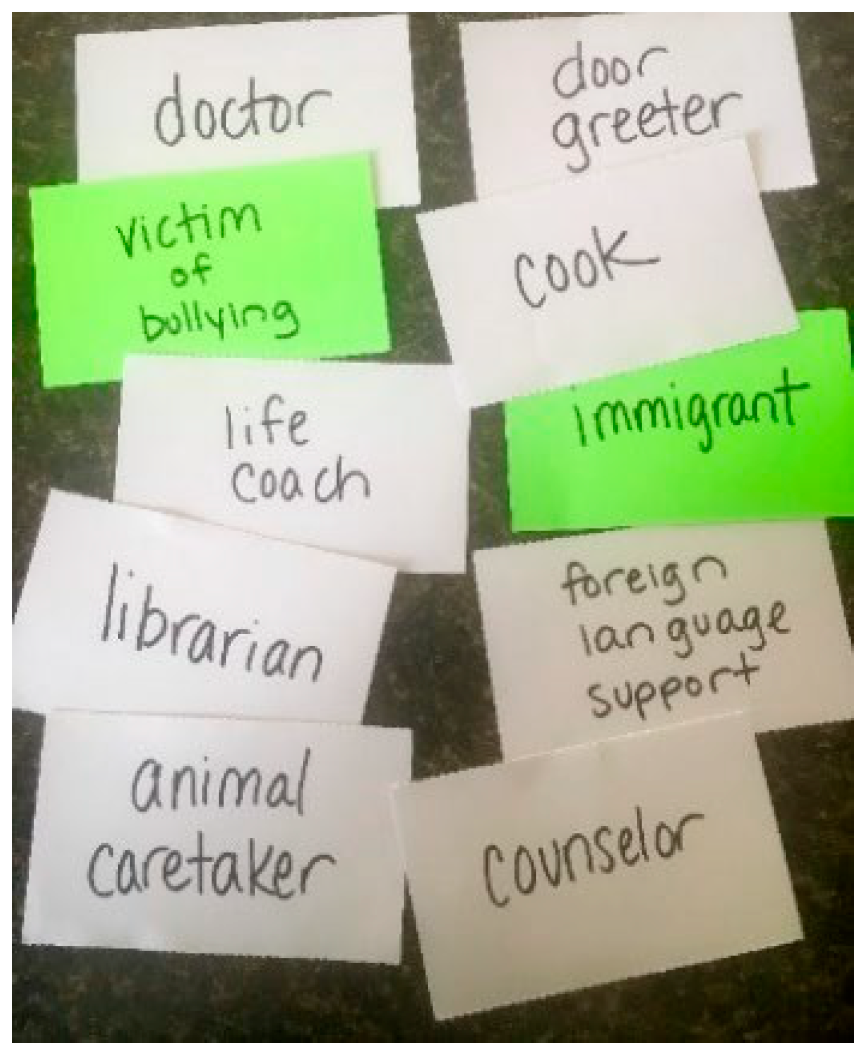 doctor
door
greeter
victim
of
bullying
cook
life
coach
immigrant
librarian
foreign
language
support
animal
caretaker
counselor